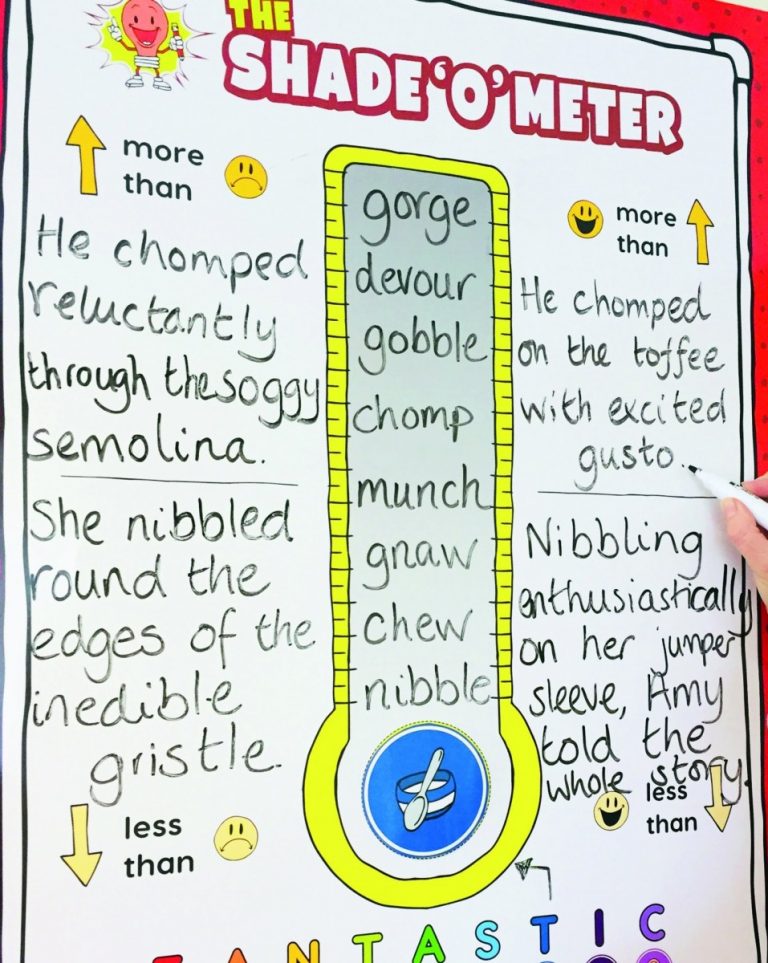 THE
SHADE'O'METER
more
than
He chomped
reluctantly
through the soggy
semolina.
She nibbled
round the
edges of the
inedible
gristle.
less
than
gorge
devour
gobble
chomp
munch
gnaw
chew
nibble
more
than
He chomped
on the toffee
with excited
gusto.
Nibbling
enthusiastically
on her jumper
sleeve, Amy
told the
whole story.
less
than
FANTASTIC